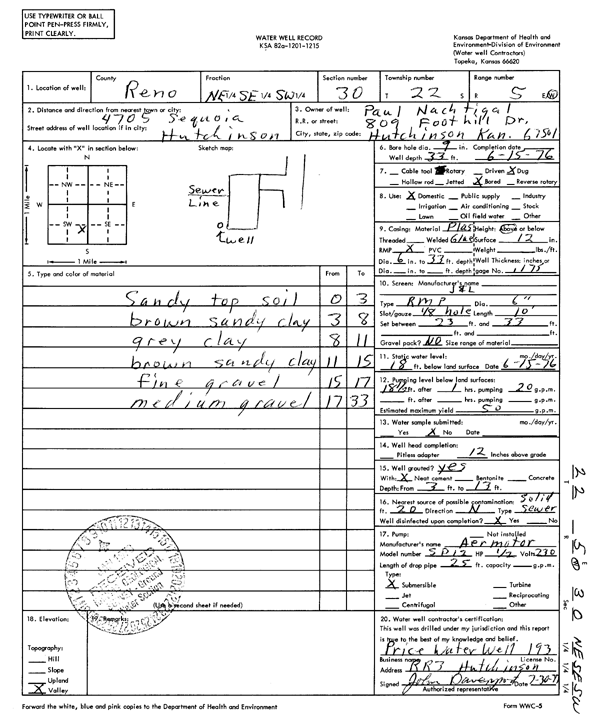 USE TYPEWRITER OR BALL
POINT PEN-PRESS FIRMLY,
PRINT CLEARLY.
WATER WELL RECORD
KSA 82a-1201-1215
Kansas Department of Health and
Environment-Division of Environment
(Water well Contractors)
Topeka, Kansas 66620
1. Location of well:
County
Reno
Fraction
NE 1/4 SE 1/4 SW 1/4
Section number
30
Township number
T 22 S
Range number
R 5 E/W
2. Distance and direction from nearest town or city:
4705 Sequoia
Street address of well location if in city:
Hutchinson
3. Owner of well: Paul Nachtigal
R.R. or street: 809 Foothill Dr.
City, state, zip code: Hutchinson Kan. 67501
4. Locate with "X" in section below:
Sketch map:
N
NW NE
W E
SW X SE
S
1 Mile
1 Mile
Sewer
Line
well
5. Type and color of material
From To
Sandy top soil 0 3
brown sandy clay 3 8
grey clay 8 11
brown sandy clay 11 15
fine gravel 15 17
medium gravel 17 33
(Use a second sheet if needed)
RECEIVED
6. Bore hole dia. 9 in. Completion date
Well depth 33 ft. 6-15-76
7. Cable tool Rotary Driven X Dug
Hollow rod Jetted X Bored Reverse rotary
8. Use: X Domestic Public supply Industry
Irrigation Air conditioning Stock
Lawn Oil field water Other
9. Casing: Material Plas Height: Above or below
Threaded Welded Glue Surface 12 in.
RMP X PVC Weight lbs./ft.
Dia. 6 in. to 33 ft. depth Wall Thickness: inches or
Dia. in. to ft. depth gage No.
10. Screen: Manufacturer's name
Type RMP Dia. 6"
Slot/gauze 1/8 hole Length 10'
Set between 23 ft. and 33 ft.
ft. and ft.
Gravel pack? NO Size range of material
11. Static water level: mo./day/yr.
18 ft. below land surface Date 6-15-76
12. Pumping level below land surfaces:
18 1/2 ft. after 1 hrs. pumping 20 g.p.m.
ft. after hrs. pumping g.p.m.
Estimated maximum yield 50 g.p.m.
13. Water sample submitted: mo./day/yr.
Yes X No Date
14. Well head completion:
Pitless adapter 12 Inches above grade
15. Well grouted? yes
With: X Neat cement Bentonite Concrete
Depth: From 3 ft. to 13 ft.
16. Nearest source of possible contamination: Solid
ft. 20 Direction N Type Sewer
Well disinfected upon completion? X Yes No
17. Pump: Not installed
Manufacturer's name Aermotor
Model number SP12 HP 1/2 Volts 230
Length of drop pipe 25 ft. capacity g.p.m.
Type:
X Submersible Turbine
Jet Reciprocating
Centrifugal Other
18. Elevation:
19. Remarks:
Topography:
Hill
Slope
Upland
X Valley
20. Water well contractor's certification:
This well was drilled under my jurisdiction and this report
is true to the best of my knowledge and belief.
Price Water Well 193
Business name License No.
Address RR3 Hutchinson
Signed John Davenport Date
Authorized representative
Forward the white, blue and pink copies to the Department of Health and Environment
Form WWC-5
T 22 R 5 E W Sec 30 NE SE SW 1/4 1/4 1/4